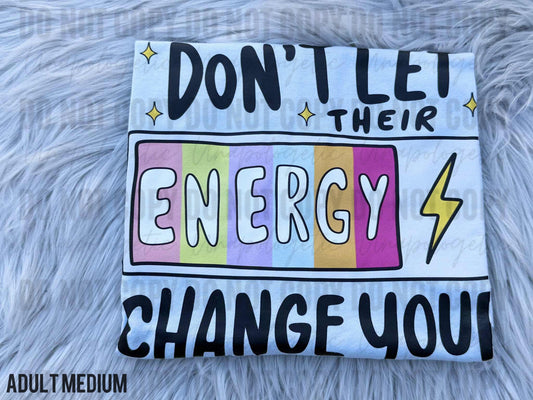 DO NOT COPY DO NOT COPY DO NOT COPY
DON'T LET
THEIR
ENERGY
CHANGE YOUR
ADULT MEDIUM